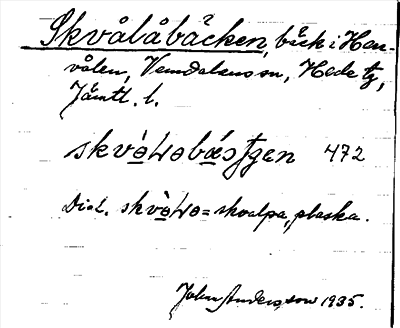 Skvålåbäcken, bäck i Hen-
vålen, Vemdalens sn, Hede tg,
Jämtl. l.
472
Dial. = skvalpa, plaska.
John Andersson 1935.